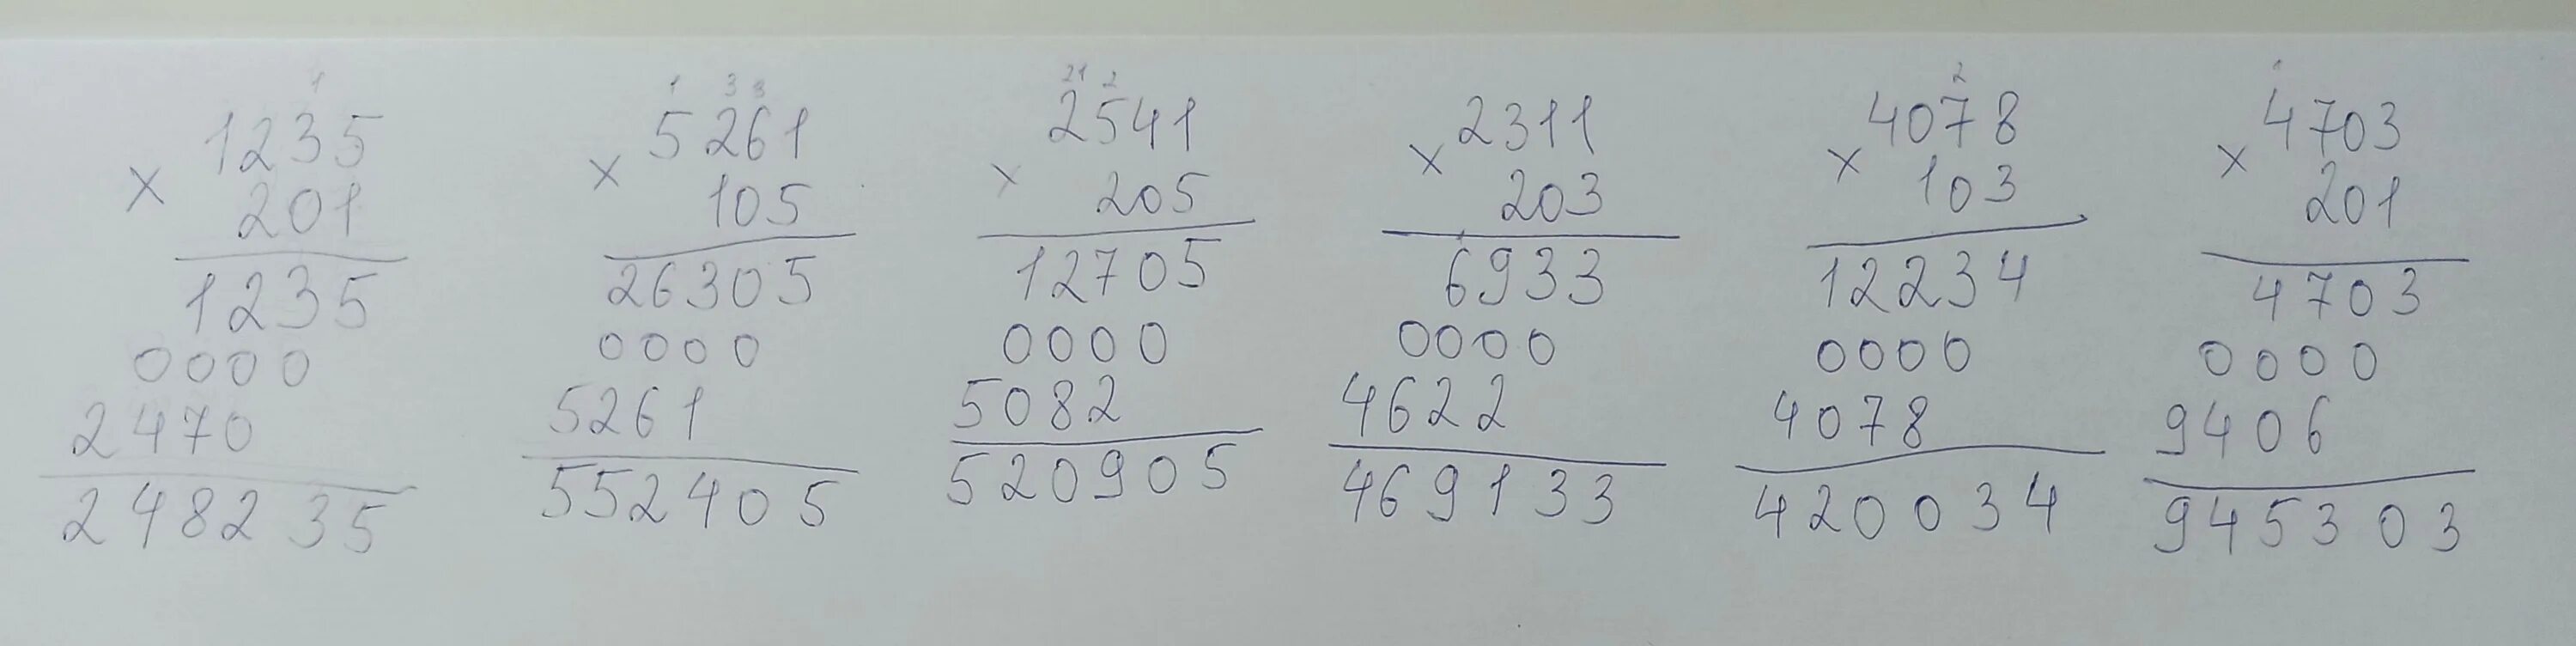 1
1235
× 201
1235
0000
2470
248235
1 3 3
5261
× 105
26305
0000
5261
552405
21 2
2541
× 205
12705
0000
5082
520905
2311
× 203
6933
0000
4622
469133
2
4078
× 103
12234
0000
4078
420034
1
4703
× 201
4703
0000
9406
945303